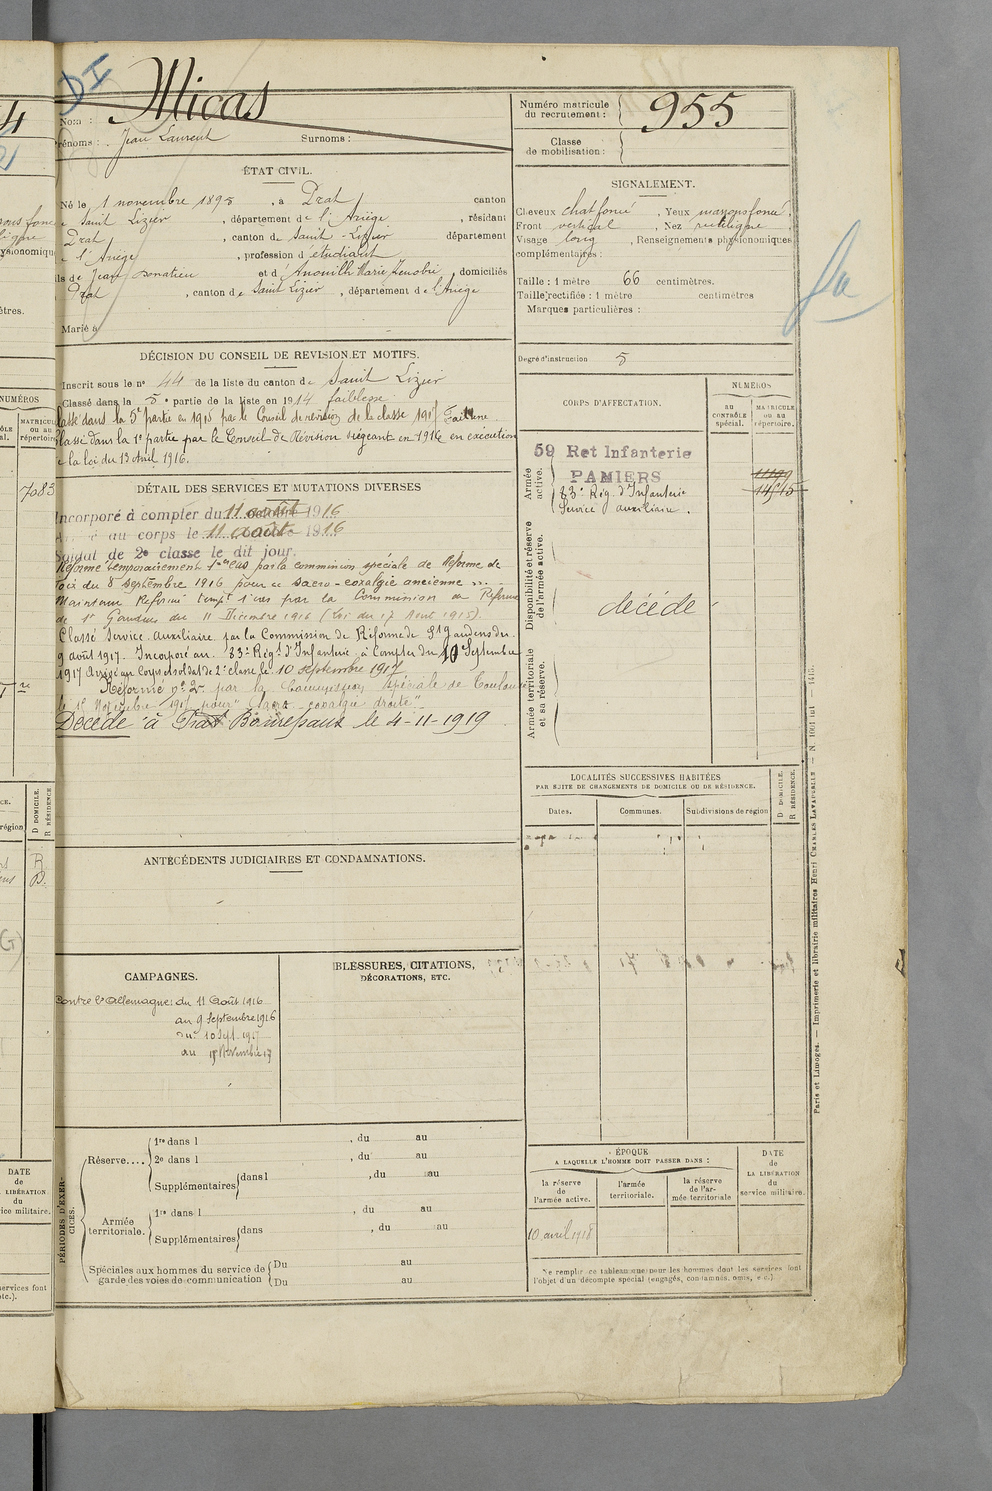 DI
Micas
Nom :
Prénoms : Jean Laurent Surnoms :
ÉTAT CIVIL.
Né le 1 novembre 1895, à Prat canton
de Saint Lizier, département de l'Ariège, résidant
Prat, canton de Saint-Lizier département
de l'Ariège, profession d'étudiant
fils de Jean Donatien et d'Anouilh Marie Zenobie, domiciliés
Prat, canton de Saint Lizier, département de l'Ariège
Marié à
DÉCISION DU CONSEIL DE REVISION ET MOTIFS.
Inscrit sous le no 44 de la liste du canton de Saint Lizier
Classé dans la 5e partie de la liste en 1914 faiblesse
Classé dans la 5e partie en 1915 par le Conseil de révision de la classe 191
Classé dans la 1e partie par le Conseil de Révision siégeant en 1916 en exécution
de la loi du 13 Avril 1916.
DÉTAIL DES SERVICES ET MUTATIONS DIVERSES
Incorporé à compter du 11 août 1916
au corps le 11 août 1916
Soldat de 2e classe le dit jour.
Réformé temporairement par la commission spéciale de Réforme de
Foix du 8 septembre 1916 pour sacro-coxalgie ancienne
Maintenu Réformé tempre par la Commission de Réforme
de St Gaudens du 11 Décembre 1916 (Loi du 17 Aout 1915).
Classé Service Auxiliaire par la Commission de Réforme de St Gaudens du
9 août 1917. Incorporé au 83e Régt d'Infanterie à compter du 10 Septembre
1917 Arrivé au Corps et soldat de 2e classe le 10 septembre 1917
Réformé no 2 par la Commission spéciale de Toulouse
le Novembre 1917 pour "sacro coxalgie droite"
Décédé à Prat Bonrepaux le 4-11-1919
ANTÉCÉDENTS JUDICIAIRES ET CONDAMNATIONS.
CAMPAGNES.
Contre l'Allemagne: du 11 Août 1916
au 9 Septembre 1916
du 10 Sept. 1917
au Novembre 17
BLESSURES, CITATIONS,
DÉCORATIONS, ETC.
PÉRIODES D'EXERCICES.
Réserve....
1re dans l , du au
2e dans l , du au
Supplémentaires dans l , du au
Armée territoriale.
1re dans l , du au
Supplémentaires dans , du au
Spéciales aux hommes du service de garde des voies de communication
Du au
Du au
Numéro matricule du recrutement : 955
Classe de mobilisation :
SIGNALEMENT.
Cheveux chat foncé, Yeux marrons foncé,
Front vertical, Nez rectiligne
Visage long, Renseignements physionomiques
complémentaires :
Taille : 1 mètre 66 centimètres.
Taille rectifiée : 1 mètre centimètres
Marques particulières :
Degré d'instruction 5
CORPS D'AFFECTATION.
NUMÉROS
AU CONTRÔLE spécial.
MATRICULE ou au répertoire.
Armée active.
59 Ret Infanterie
PAMIERS
83e Rég. d'Infanterie
Service auxiliaire.
Disponibilité et réserve de l'armée active.
décédé
Armée territoriale et sa réserve.
LOCALITÉS SUCCESSIVES HABITÉES
PAR SUITE DE CHANGEMENTS DE DOMICILE OU DE RÉSIDENCE.
Dates. Communes. Subdivisions de région
D DOMICILE.
R RÉSIDENCE.
ÉPOQUE
A LAQUELLE L'HOMME DOIT PASSER DANS :
la réserve de l'armée active.
l'armée territoriale.
la réserve de l'armée territoriale
DATE de LA LIBÉRATION du service militaire.
10 avril 1918
Ne remplir ce tableau que pour les hommes dont les services font
l'objet d'un décompte spécial (engagés, condamnés, omis, etc.)
Paris et Limoges. — Imprimerie et librairie militaires Henri CHARLES-LAVAUZELLE